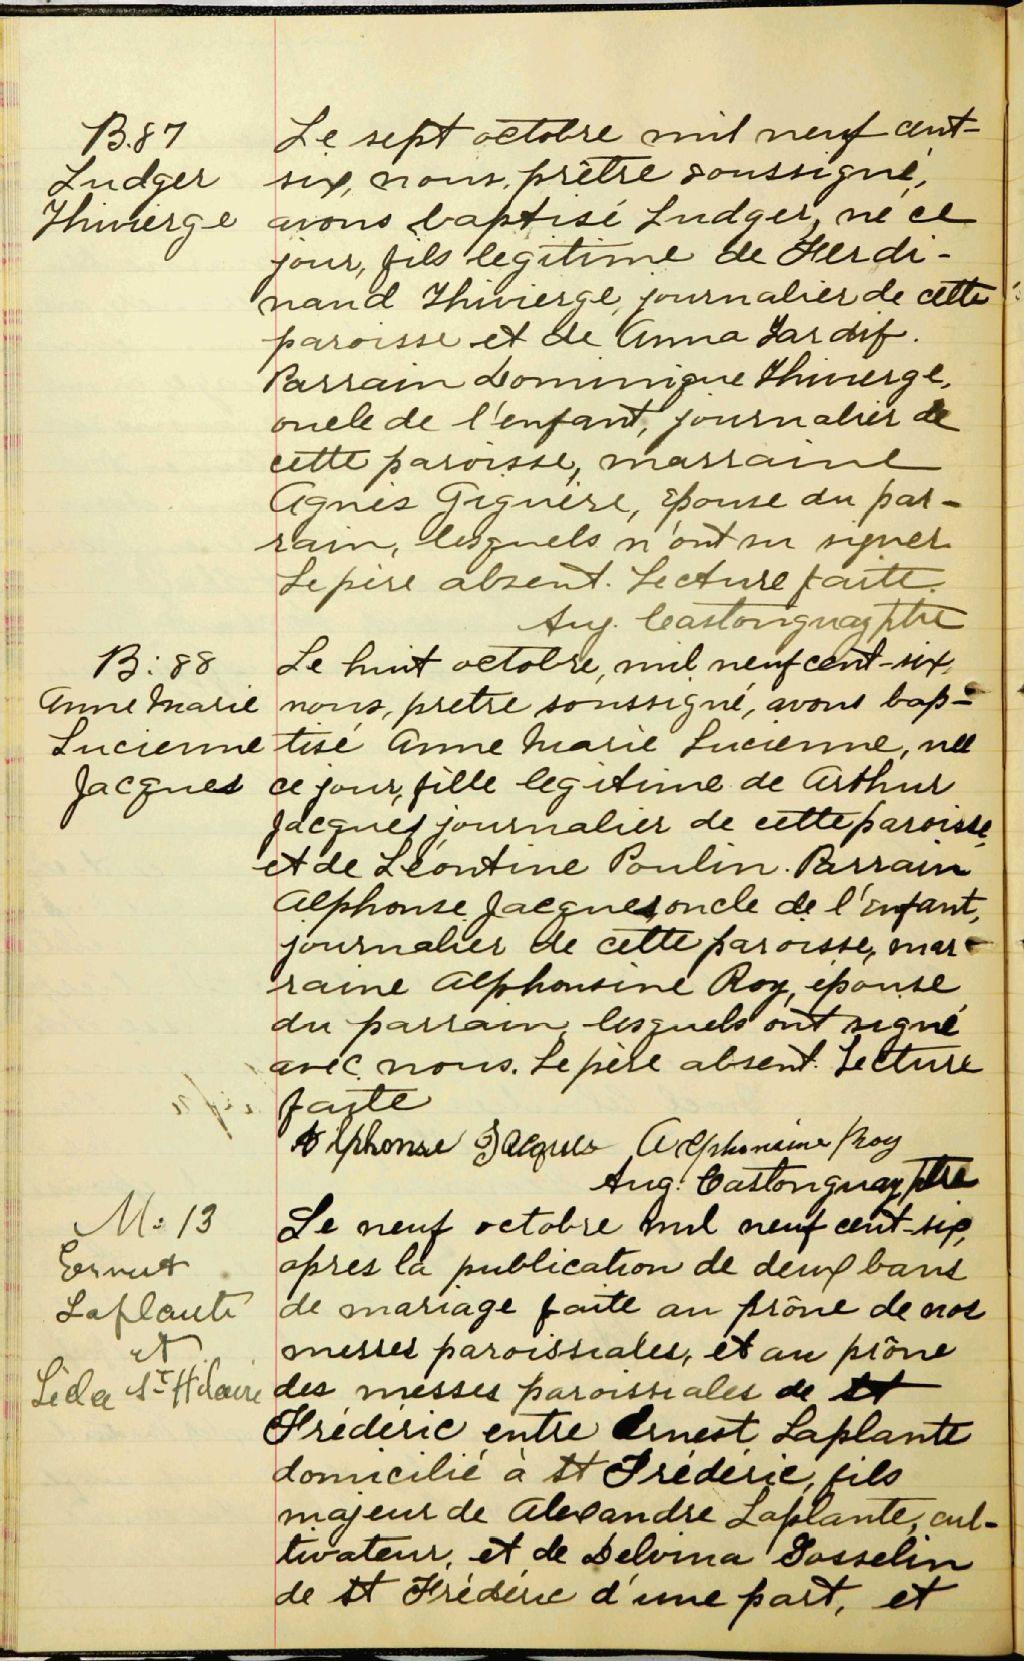 B.87
Ludger
Thivierge
Le sept octobre mil neuf cent-
six, nous, prêtre soussigné,
avons baptisé Ludger, né ce
jour, fils legitime de Ferdi-
nand Thivierge, journalier de cette
paroisse et de Anna Tardif.
Parrain Dominique Thivierge,
oncle de l'enfant, journalier de
cette paroisse, marraine
Agnès Giguère, épouse du par-
rain, lesquels n'ont su signer.
Le père absent. Lecture faite.
Aug. Castonguay ptre
B: 88
Anne Marie
Lucienne
Jacques
Le huit octobre, mil neuf cent-six,
nous, pretre soussigné, avons bap-
tisé Anne Marie Lucienne, née
ce jour, fille legitime de Arthur
Jacques journalier de cette paroisse,
et de Léontine Poulin. Parrain
Alphonse Jacques, oncle de l'enfant,
journalier de cette paroisse, mar-
raine Alphonsine Roy, épouse
du parrain, lesquels ont signé
avec nous. Le père absent. Lecture
faite
Alphonse Jacques Alphonsine Roy
Aug. Castonguay ptre
M: 13
Ernest
Laplante
et
Lèda St Hilaire
Le neuf octobre mil neuf cent-six,
apres la publication de deux bans
de mariage faite au prône de nos
messes paroissiales, et au prône
des messes paroissiales de St
Frédéric entre Ernest Laplante
domicilié à St Frédéric, fils
majeur de Alexandre Laplante, cul-
tivateur, et de Delvina Gosselin
de St Frédéric d'une part, et